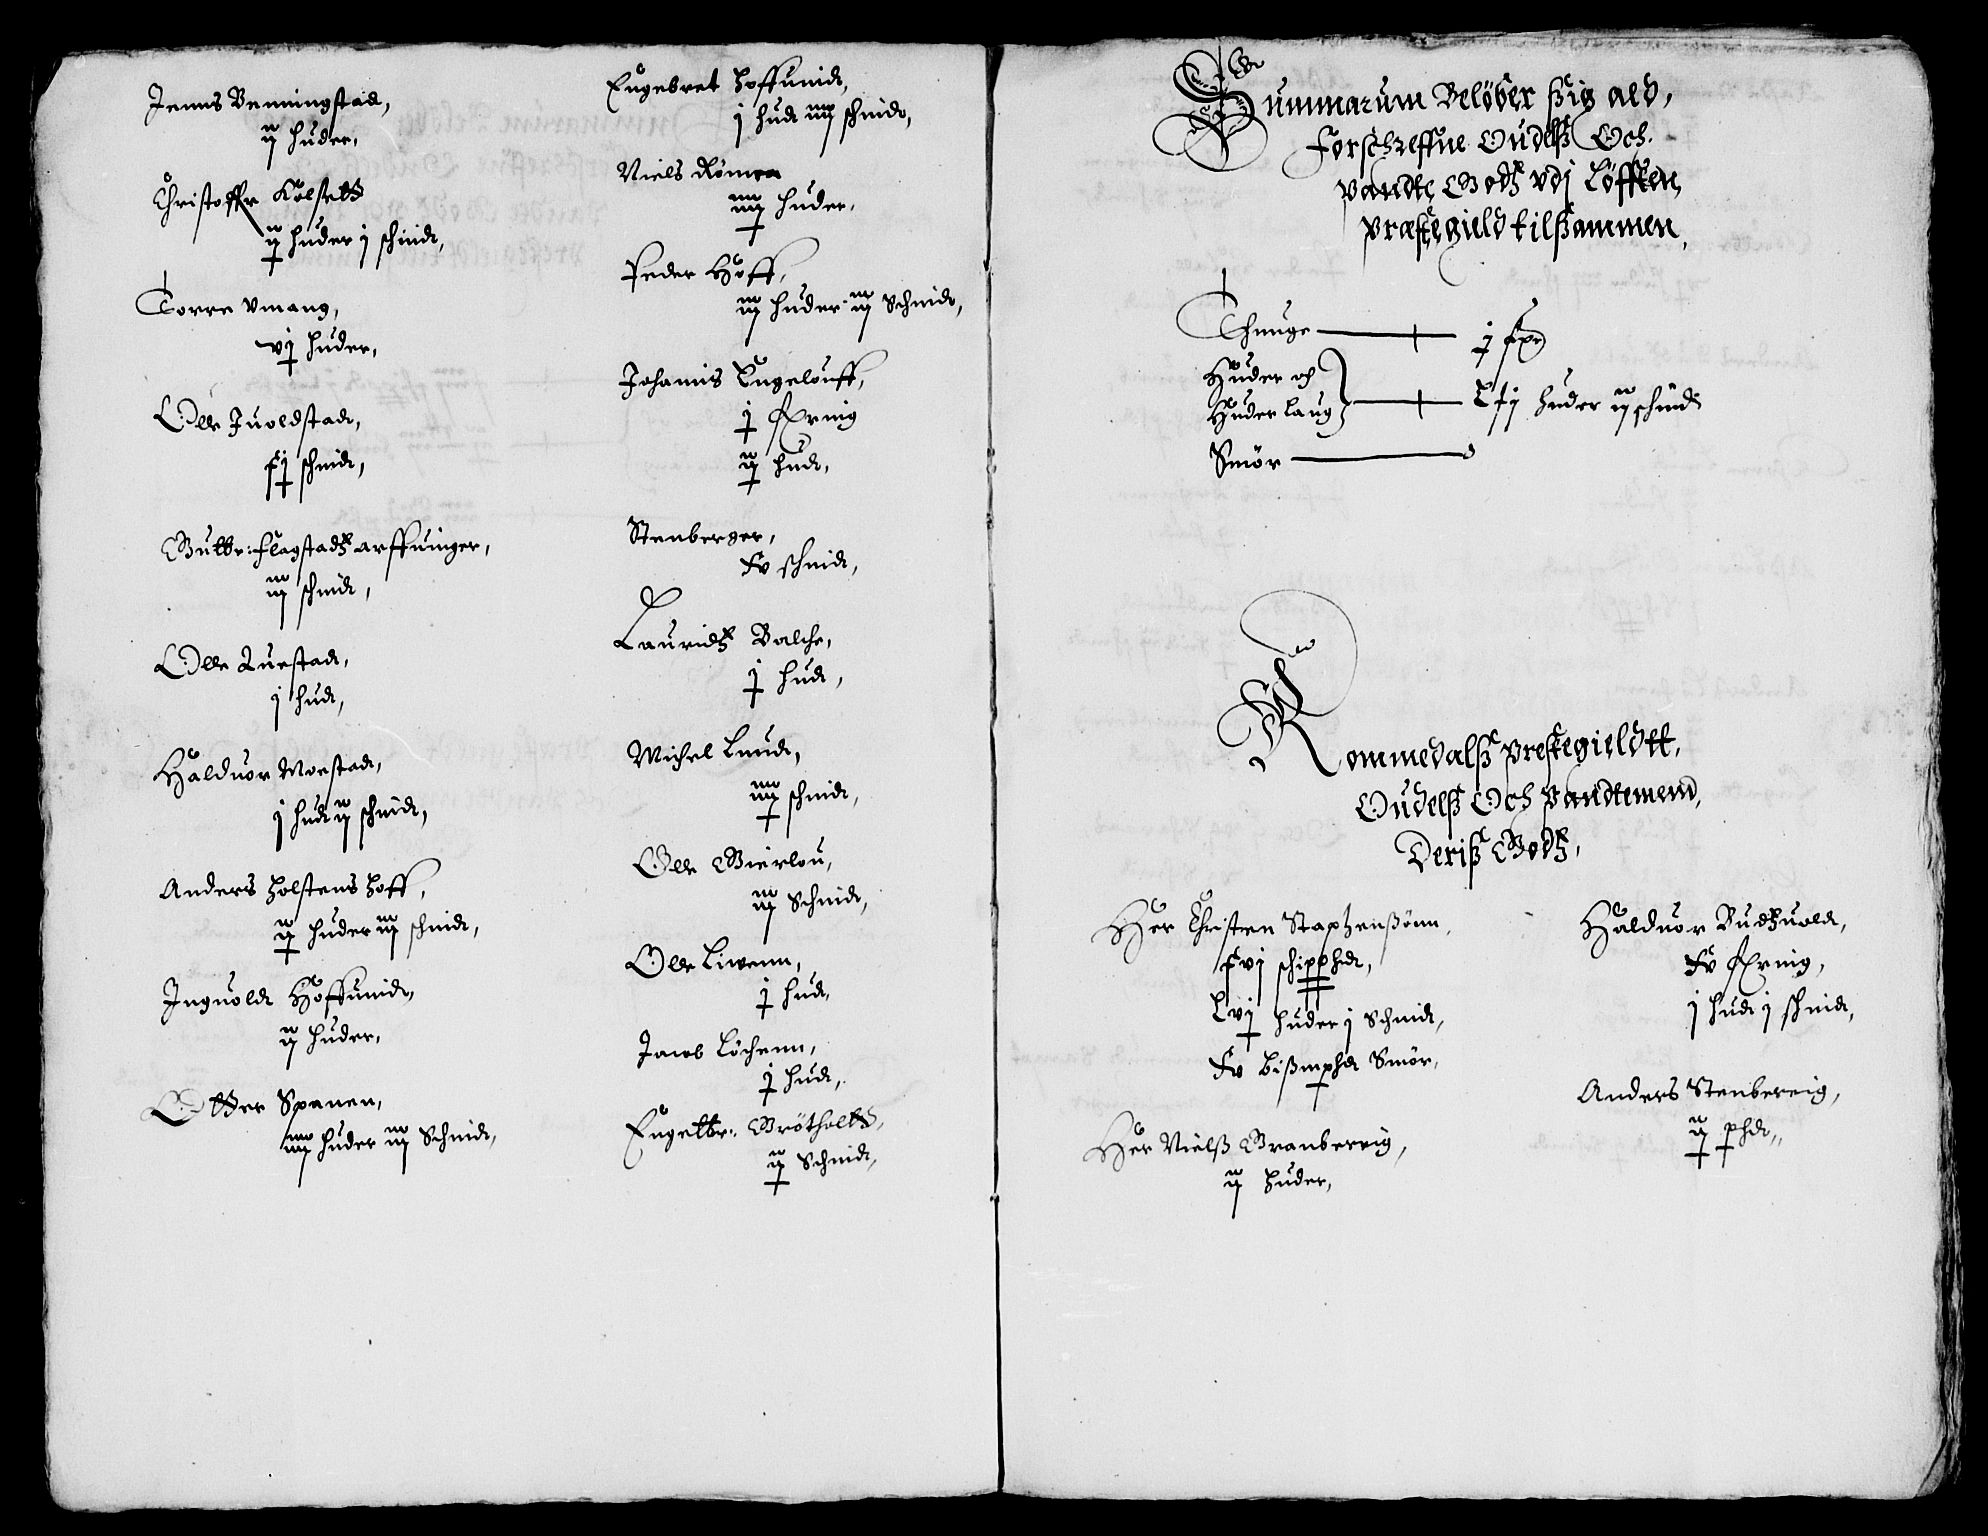 Jenns Benningstad,
ij huder,
Christoffr Kolsett
ij huder j schind,
Torre Vmang,
vj huder,
Olle Juoldstad,
xj schind,
Gutbr: Flagstadtz arffuinger,
iij schind,
Olle Questad,
j hud,
Halduor Moestad,
j hud ij schind,
Anders Holstens Hoff,
ij huder iij schind,
Inguold Hoffuind,
ij huder,
Otter Spanen,
iiij huder iij Schind,
Engebret Hoffuind,
j hud iiij schind,
Niels Rømen
iiij huder,
Peder Hoff,
iij huder iij Schind,
Johanis Engelouff,
j fxring
ij hud,
Stenberger,
xv schind,
Lauridtz Balche,
j hud,
Michel Lund,
iiij schind,
Olle Gierlou,
iij Schind,
Olle Liwenn,
j hud,
Jacob Løchenn,
j hud,
Engelbr: Grøtholt,
ij Schind,
Summarum Beløber sig ald,
Forschreffne Oudelß Och
Pandte Godtz vdj Løfften
Præstegield tilsammen,
Thunge — j fxr
Huder och
Huder laug — Lxj huder ij schind
Smør — 0
Rommedalß Prestegieldtt,
Oudelß Och Pandtemend,
Deriß Godtz,
Her Christen Staphenßønn,
xvj schippd,
Lvj huder j Schind,
xv bißmpd Smør,
Her Nielß Branberrig,
ij huder,
Halduor Budtzuold,
xv fxring,
j hud j schind,
Anders Stenberrig,
ij phd,